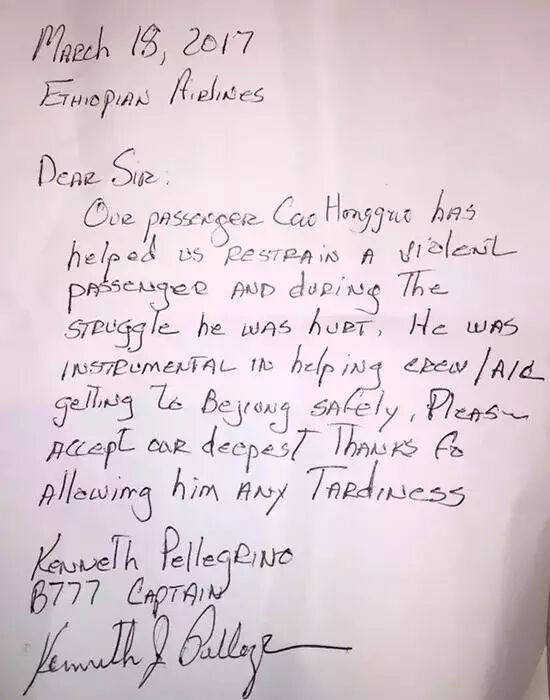 March 18, 2017
Ethiopian Airlines
Dear Sir:
Our passenger Cao Hongguo has
helped us restrain a violent
passenger and during the
struggle he was hurt. He was
instrumental in helping crew/A/C
getting to Bejiong safely. Please
accept our deepest thanks fo
allowing him any tardiness
Kenneth Pellegrino
B777 Captain
Kenneth J